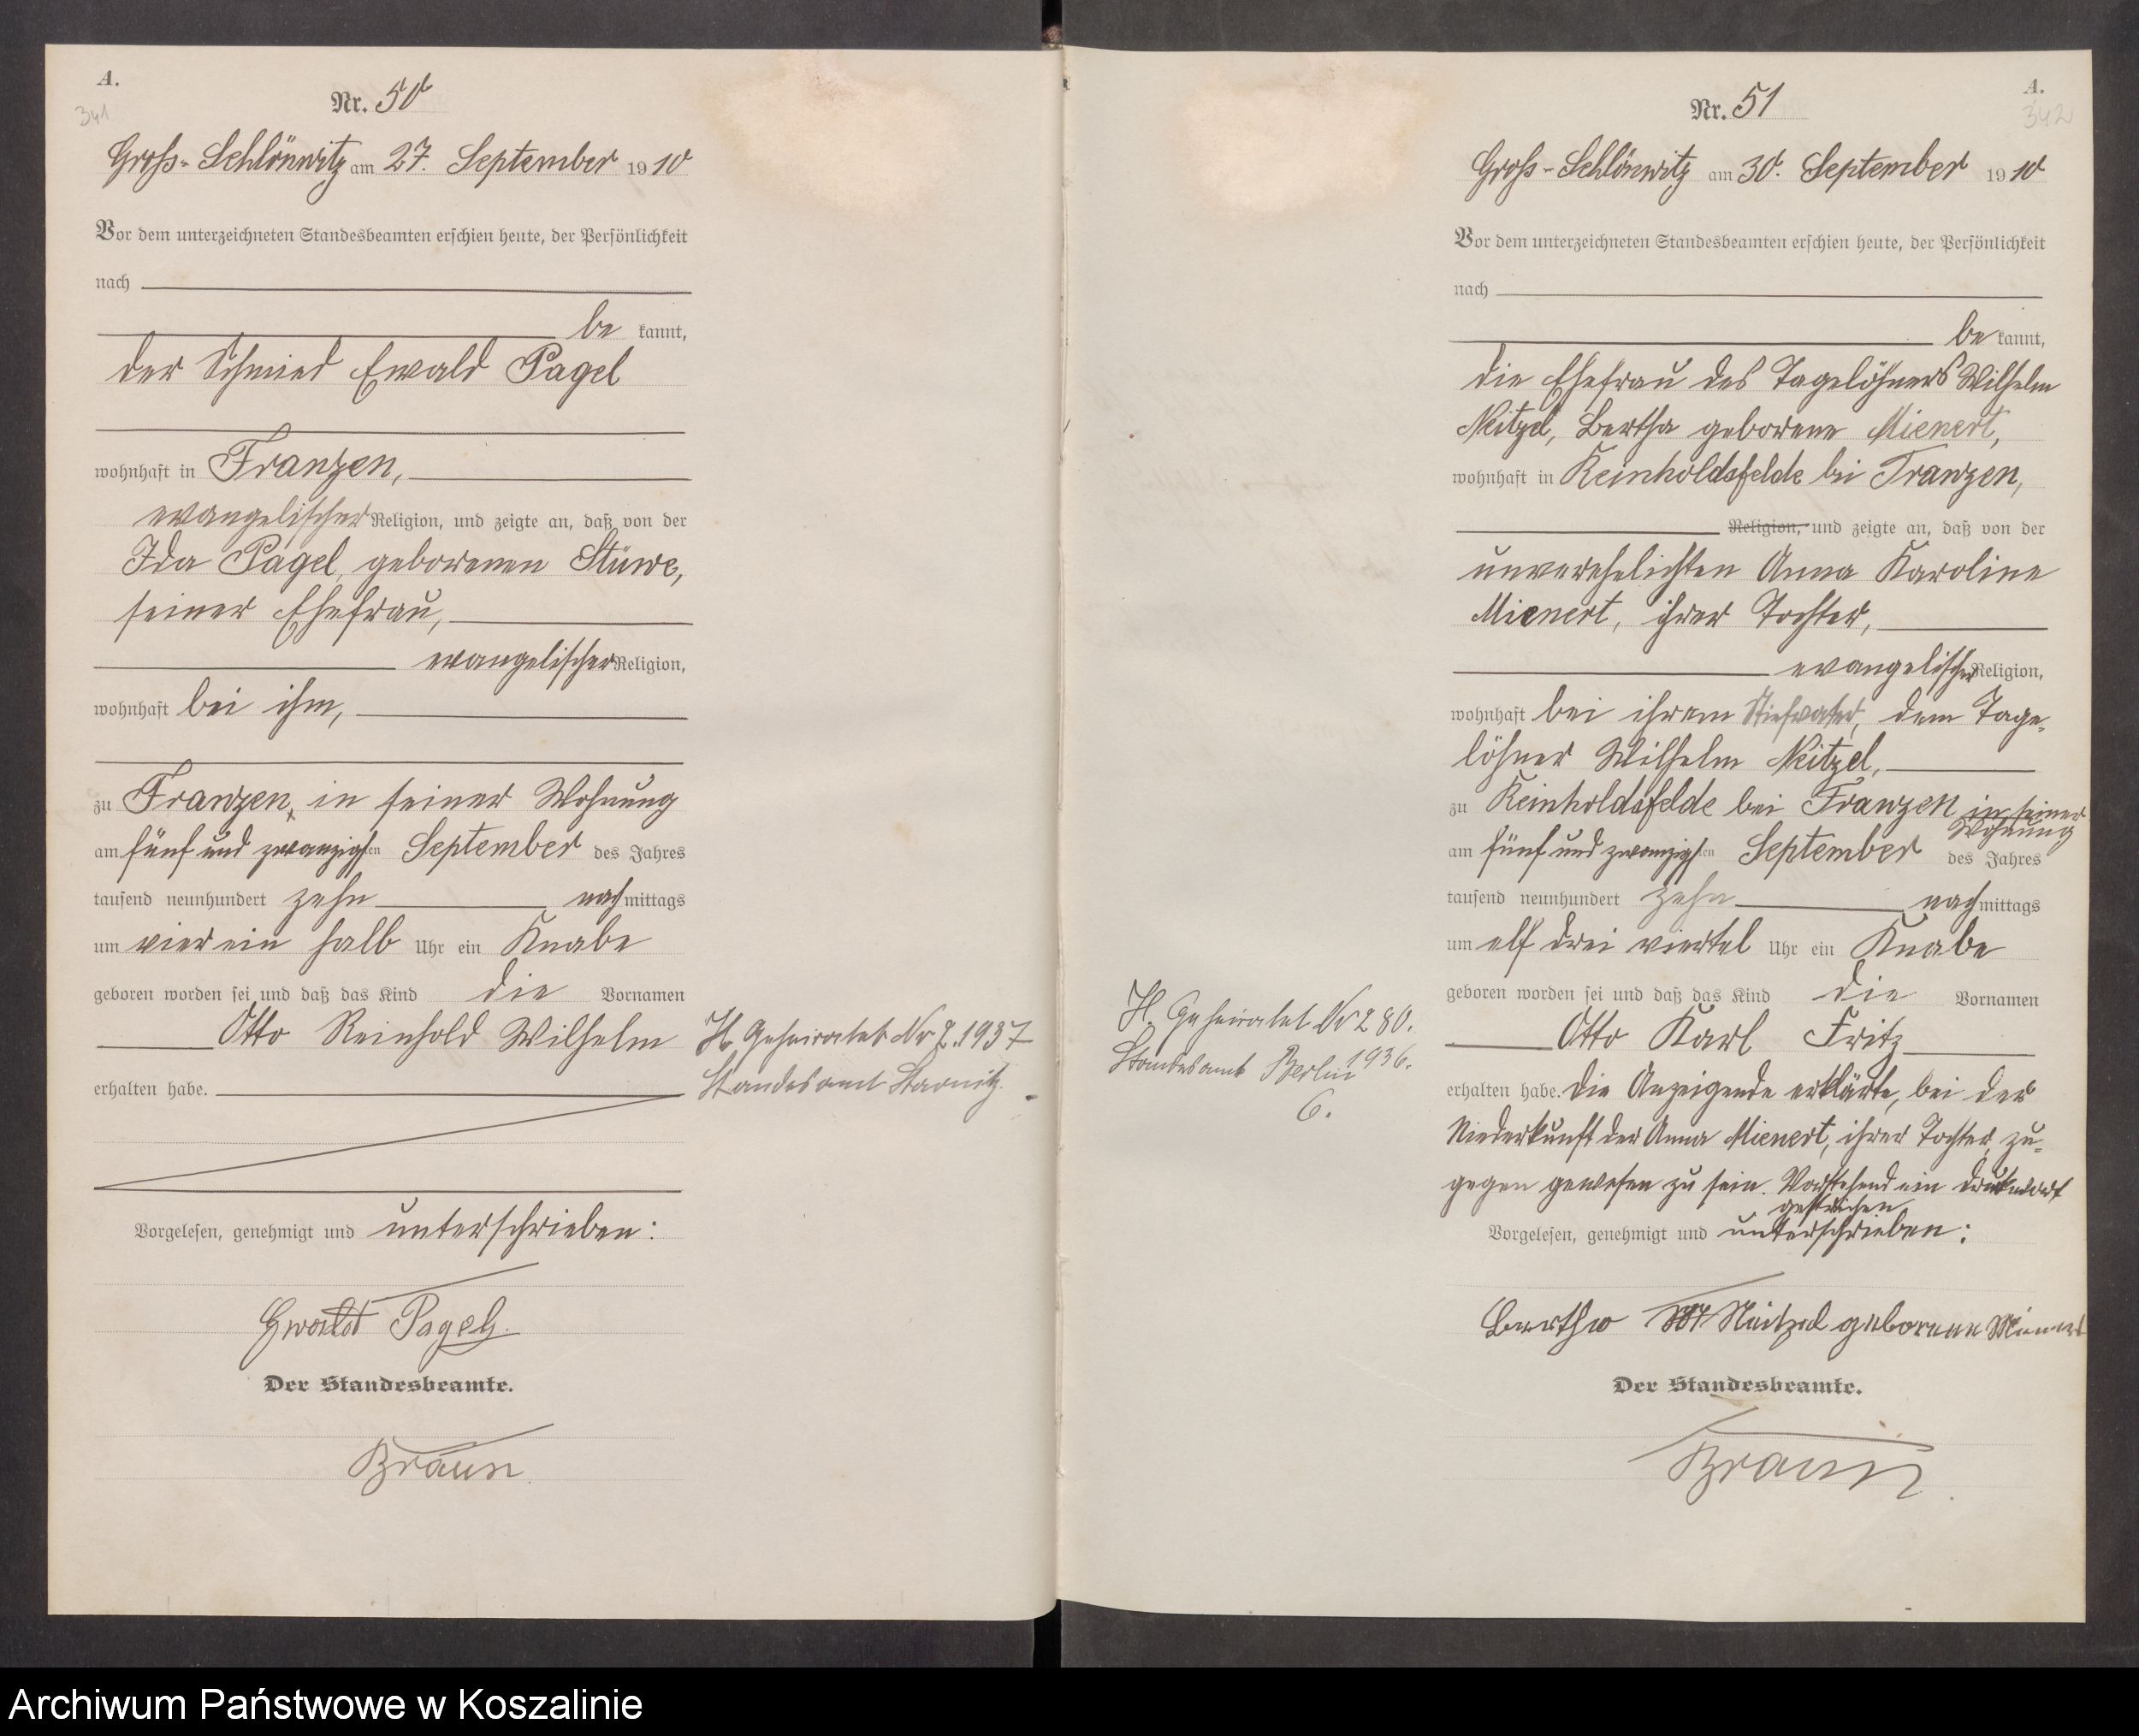 A.
341
Nr. 50
Gross-Schlönwitz am 27. September 1910
Vor dem unterzeichneten Standesbeamten erschien heute, der Persönlichkeit
nach
be kannt,
der Schmied Ewald Pagel
wohnhaft in Franzen,
evangelischer Religion, und zeigte an, daß von der
Ida Pagel, geborenen Stüwe,
seiner Ehefrau,
evangelischer Religion,
wohnhaft bei ihm,
zu Franzen, in seiner Wohnung
am fünf und zwanzigsten September des Jahres
tausend neunhundert zehn nachmittags
um vier ein halb Uhr ein Knabe
geboren worden sei und daß das Kind die Vornamen
Otto Reinhold Wilhelm
erhalten habe.
Vorgelesen, genehmigt und unterschrieben:
Ewald Pagel.
Der Standesbeamte.
Braun.
H. Geheiratet Nr 2.1937
Standesamt
H. Geheiratet Nr 280.
Standesamt Berlin 1936.
6.
A.
342
Nr. 51
Gross-Schlönwitz am 30. September 1910
Vor dem unterzeichneten Standesbeamten erschien heute, der Persönlichkeit
nach
be kannt,
die Ehefrau des Tagelöhners Wilhelm
Neitzel, Bertha geborene Mienert,
wohnhaft in Reinholdsfelde bei Franzen,
Religion, und zeigte an, daß von der
unverehelichten Anna Karoline
Mienert, ihrer Tochter,
evangelischer Religion,
wohnhaft bei ihrem Stiefvater, dem Tage-
löhner Wilhelm Neitzel,
zu Reinholdsfelde bei Franzen in seiner
Wohnung
am fünf und zwanzigsten September des Jahres
tausend neunhundert zehn nachmittags
um elf drei viertel Uhr ein Knabe
geboren worden sei und daß das Kind die Vornamen
Otto Karl Fritz
erhalten habe. Die Anzeigende erklärte, bei der
Niederkunft der Anna Mienert, ihrer Tochter, zu-
gegen gewesen zu sein. Vorstehend ein Druckwort
gestrichen
Vorgelesen, genehmigt und unterschrieben:
Bertha Neitzel geborene Mienert
Der Standesbeamte.
Braun.
Archiwum Państwowe w Koszalinie